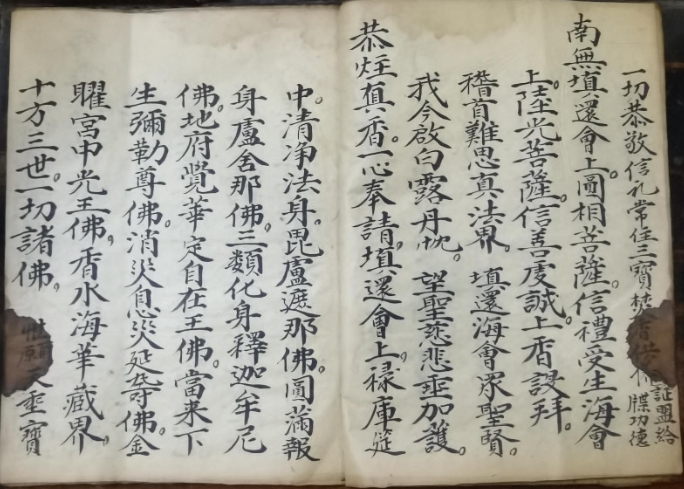 一切恭敬信礼常住三寶焚香供 証盟給牒功德
南無填還會上圓相菩薩。信禮受生海會
上陞光菩薩。信善虔誠上香設拜。
稽首難思真法界。填還海會眾聖賢。
我今啟白露丹忱。望聖慈悲垂加護。
恭炷真香。一心奉請。填還會上。祿庫筵
中。清净法身。毘盧遮那佛。圓滿報
身盧舍那佛。三類化身釋迦牟尼
佛。地府覺華定自在王佛。當来下
生彌勒尊佛。消災息災延壽佛。金
曜宮中光王佛。香水海華藏界。
十方三世一切諸佛。惟願天垂寶